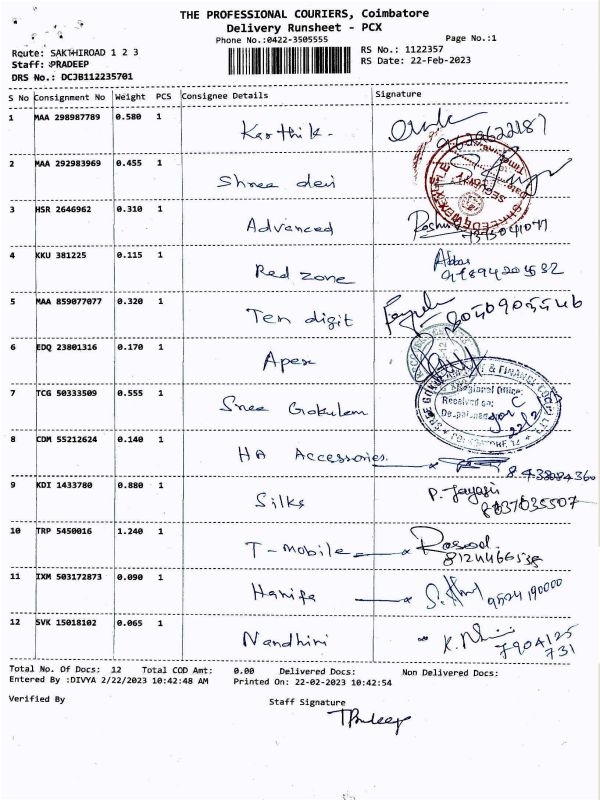 THE PROFESSIONAL COURIERS, Coimbatore
Delivery Runsheet - PCX
Phone No.:0422-3505555 Page No.:1
Route: SAKTHIROAD 1 2 3 RS No.: 1122357
Staff: PRADEEP RS Date: 22-Feb-2023
DRS No.: DCJB112235701
S No Consignment No Weight PCS Consignee Details Signature
1 MAA 298987789 0.580 1 Karthik. 9629622187
2 MAA 292983969 0.455 1 Shree devi
3 HSR 2646962 0.310 1 Advanced
4 KKU 381225 0.115 1 Red zone
5 MAA 859077077 0.320 1 Ten digit
6 EDQ 23801316 0.170 1 Apex
7 TCG 50333509 0.555 1 Sree Gokulam
Regional Office
Received on:
8 CDM 55212624 0.140 1 HA Accessories. 8438084360
9 KDI 1433780 0.880 1 Silks P. Jayasri 8837035507
10 TRP 5450016 1.240 1 T-mobile
11 IXM 503172873 0.090 1 Hanifa 9524190000
12 SVK 15018102 0.065 1 Nandhini 7904125
731
Total No. Of Docs: 12 Total COD Amt: 0.00 Delivered Docs: Non Delivered Docs:
Entered By :DIVYA 2/22/2023 10:42:48 AM Printed On: 22-02-2023 10:42:54
Verified By Staff Signature
TPradeep